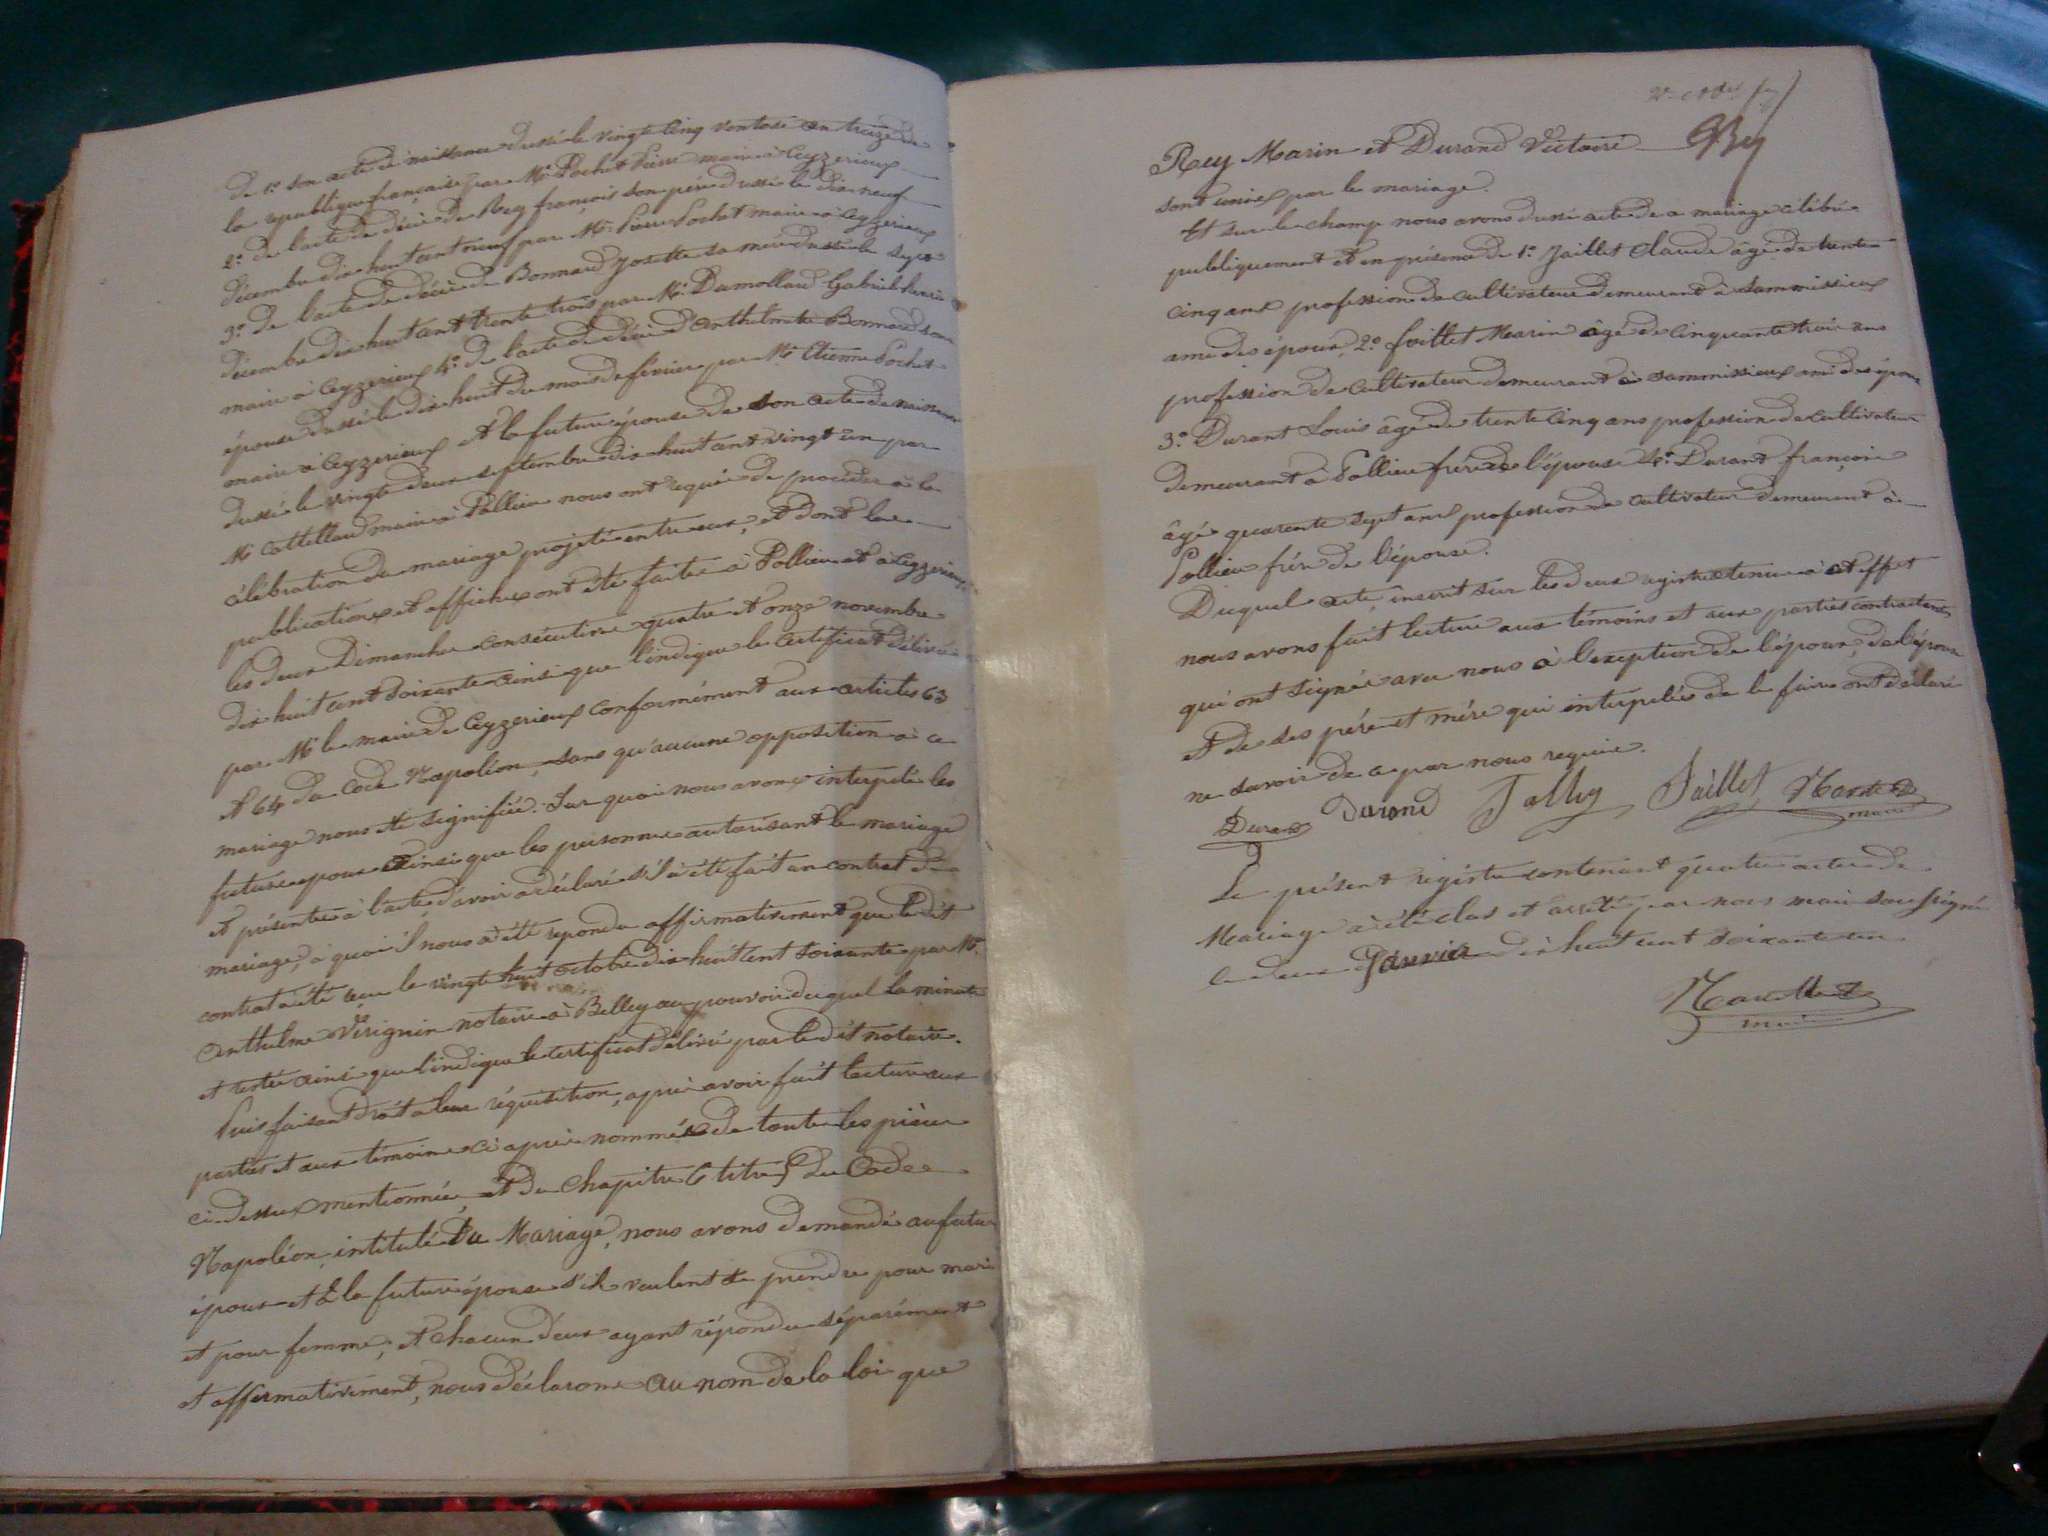 de 1º son acte de naissance dressé le vingt cinq ventose an treize de
la republique française par Mr Pochet Pierre maire à Ceyzerieux
2º de l'acte de décès de Rey françois son père dressé le dix neuf
décembre dix huit cent neuf par Mr Pierre Pochet maire à Ceyzerieux
3º de l'acte de décès de Bonnard Josette sa mère dressé le sept
décembre dix huit cent trente trois par Mr Damollard Gabriel
maire à Ceyzerieux 4º de l'acte de décès d'Anthelmette Bonnard son
épouse dressé le dix huit du mois de février par Mr Etienne Pochet
maire à Ceyzerieux et la future épouse de son acte de naissance
dressé le vingt deux septembre dix huit cent vingt un par
Mr Cattelland maire à Pollieu nous ont requis de procéder à la
célébration du mariage projeté entre eux, et dont les
publications et affiches ont été faites à Pollieu et à Ceyzerieux
les deux Dimanches consécutives quatre et onze novembre
dix huit cent soixante ainsi que l'indique le certificat délivré
par Mr le maire de Ceyzerieux conformément aux articles 63
et 64 du Code Napoléon, sans qu'aucune opposition à ce
mariage nous ete signifiée. Sur quoi nous avons interpelé les
futurs epoux ainsi que les personnes autorisant le mariage
et présentes à l'acte d'avoir a déclaré s'il a été fait un contrat de
mariage, à quoi il nous a été repondu affirmativement que le dit
contrat a été reçu le vingt huit octobre dix huit cent soixante par Mr
Anthelme Vérignin notaire à Belley au pouvoir duquel la minute
et restée ainsi que l'indique le certificat délivré par le dit notaire.
Puis faisant droit a leur réquisition, après avoir fait lecture aux
parties et aux temoins ci après nommés de toutes les pièces
ci-dessus mentionnées, et du chapitre 6 titre 5 du Code
Napoléon, intitulé Du Mariage, nous avons demandé au futur
époux et à la future épouse s'ils veulent se prendre pour mari
et pour femme, et chacun d'eux ayant répondu séparément
et affirmativement, nous déclarons au nom de la loi que
Rey Marin et Durand Victoire
sont unis par le mariage.
Et sur le champ nous avons dressé acte de ce mariage célébré
publiquement et en présence de 1º Jaillet Claude âgé de trente
cinq ans profession de cultivateur demeurant à Sammissieux
ami des époux, 2º Jaillet Marin âgé de cinquante trois ans
profession de cultivateur demeurant à Sammissieux ami des époux
3º Durant Louis âgé de trente cinq ans profession de cultivateur
demeurant à Pollieu frère de l'épouse 4º Durant françois
âgé quarante sept ans profession de cultivateur demeurant à
Pollieu frère de l'épouse.
Duquel acte, inscrit sur les deux registres tenus à cet effet
nous avons fait lecture aux témoins et aux parties contractantes
qui ont signés avec nous à l'exeption de l'époux, de l'épouse
et de ses père et mère qui interpelés de le faire ont déclaré
ne savoir de ce par nous requis.
Durand Durand Jaillet
maire
Le présent registre contenant quatre actes de
Mariage à été clos et arrêté par nous maire soussigné
le deux Janvier dix huit cent soixante un.
maire